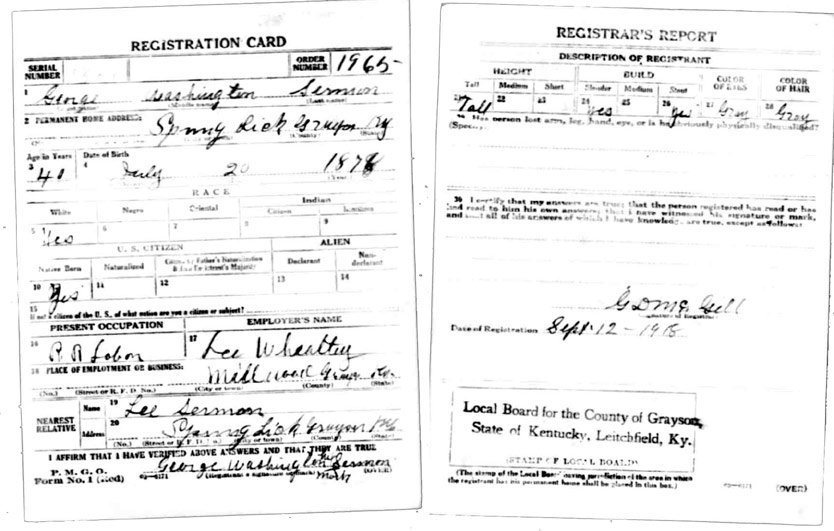 REGISTRATION CARD
SERIAL NUMBER
ORDER NUMBER 1965
1 George Washington Sermon
2 PERMANENT HOME ADDRESS:
Spring Lick Grayson Ky
Age in Years Date of Birth
3 40 4 July 20 1878
RACE
White Negro Oriental Indian
Citizen
5 Yes 6 7 8 9
U. S. CITIZEN ALIEN
Native Born Naturalized Citizen by Father's Naturalization Before Registrant's Majority Declarant Non-declarant
10 Yes 11 12 13 14
15 If not a citizen of the U. S., of what nation are you a citizen or subject?
PRESENT OCCUPATION EMPLOYER'S NAME
16 R R Labor 17 Lee Wheatley
18 PLACE OF EMPLOYMENT OR BUSINESS:
Millwood Grayson Ky.
(No.) (Street or R. F. D. No.) (City or town) (County) (State)
NEAREST RELATIVE Name 19 Lee Sermon
Address 20 Spring Lick Grayson Ky
(No.) (Street or R. F. D. No.) (City or town) (County) (State)
I AFFIRM THAT I HAVE VERIFIED ABOVE ANSWERS AND THAT THEY ARE TRUE
P. M. G. O.
Form No. 1 (Red) George Washington his Sermon
mark (OVER)
REGISTRAR'S REPORT
DESCRIPTION OF REGISTRANT
HEIGHT BUILD COLOR OF EYES COLOR OF HAIR
Tall Medium Short Slender Medium Stout
21 Tall 22 23 24 Yes 25 26 Yes 27 Gray 28 Gray
29 Has person lost arm, leg, hand, eye, or is he obviously physically disqualified?
(Specify.)
30 I certify that my answers are true; that the person registered has read or has
had read to him his own answers; that I have witnessed his signature or mark,
and that all of his answers of which I have knowledge are true, except as follows:
G D McGill
Date of Registration Sept. 12 - 1918
Local Board for the County of Grayson,
State of Kentucky, Leitchfield, Ky.
(STAMP OF LOCAL BOARD)
(The stamp of the Local Board having jurisdiction of the area in which
the registrant has his permanent home shall be placed in this box.)
03-6171 (OVER)